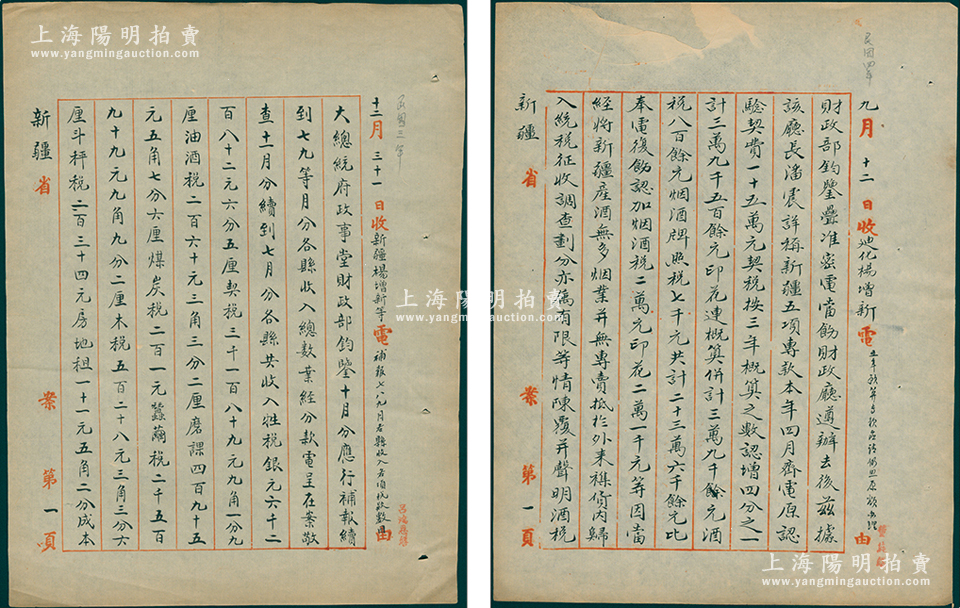 上海陽明拍賣
www.yangmingauction.com
民國四年
九月十二日收迪化楊增新電
由
財政部鈞鑒疊准密電當飭財政廳遵辦去後茲據
該廳長潘震詳稱新疆五項專款本年四月齊電原認
驗契費一十五萬元契稅按三年概算之數認增四分之一
計三萬九千五百餘元印花連概算併計三萬九千餘元酒
稅八百餘元烟酒牌照稅七千元共計二十三萬六千餘元比
奉電復飭認加烟酒稅二萬元印花二萬一千元等因當
經將新疆產酒無多烟葉并無專賣抵於外來雜貨內歸
入統稅征收調查劃分亦屬有限等情陳覆并聲明酒稅
新疆省 案 第一頁
上海陽明拍賣
www.yangmingauction.com
民國三年
十二月三十一日收新疆楊增新等電補報七八九月各縣收入各項稅數目由
大總統府政事堂財政部鈞鑒十月分應行補報續
到七九等月分各縣收入總數業經分款電呈在案敬
查十一月分續到七月分各縣共收入牲稅銀元六千二
百八十二元六分五厘契稅三千一百八十九元九角一分九
厘油酒稅二百六十元三角三分二厘磨課四百九十五
元五角七分六厘煤炭稅二百一元蠶繭稅二千五百
九十九元九角九分二厘木稅五百二十八元三角三分六
厘斗秤稅二百三十四元房地租一十一元五角二分成本
新疆省 案 第一頁
上海陽明拍賣
www.yangmingauction.com
上海陽明拍賣
www.yangmingauction.com